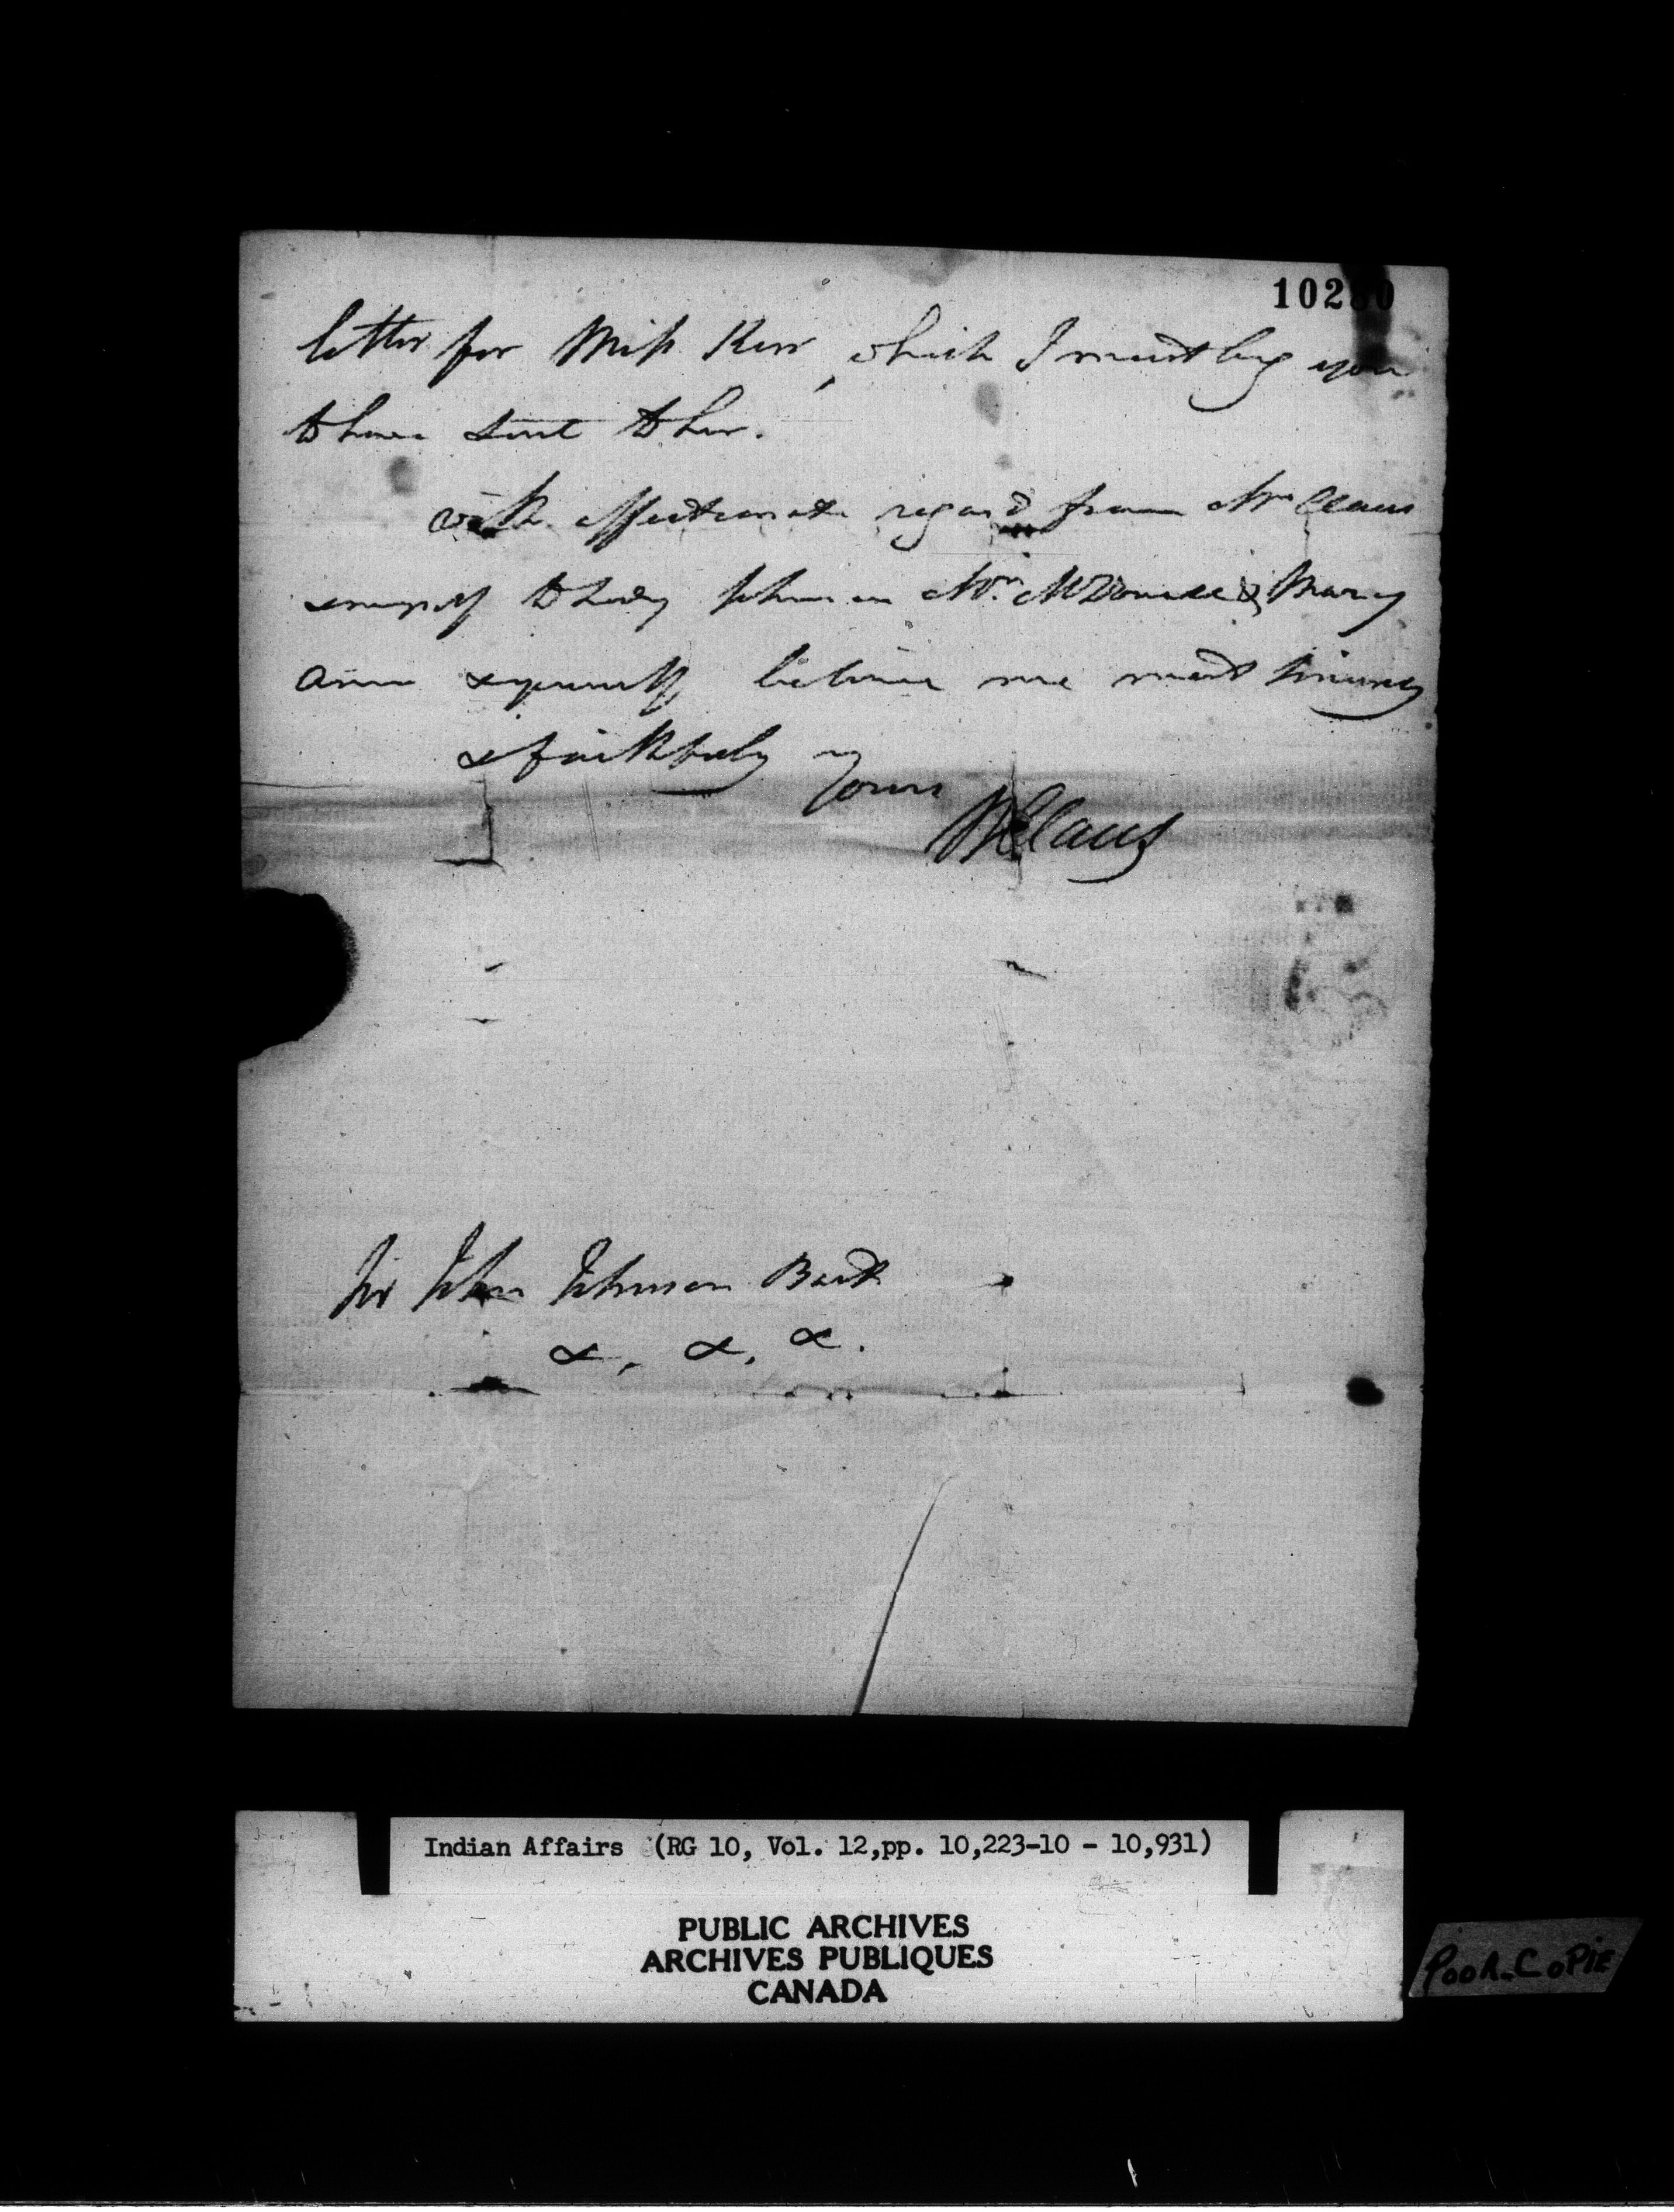 102 0
letter for Miss Kerr, which I must beg you
to have sent to her.
with affectionate regard from Mrs Claus
& myself to Lady Johnson Mrs McDonell & Mary
Ann & yourself believe me most sincerely
& faithfully
Yours
W Claus
Sir John Johnson Bart
&, &, &.
Indian Affairs (RG 10, Vol. 12,pp. 10,223-10 - 10,931)
PUBLIC ARCHIVES
ARCHIVES PUBLIQUES
CANADA
POOR-COPIE